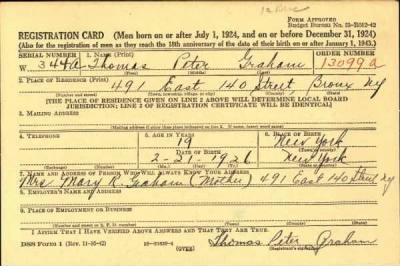 Form Approved
Budget Bureau No. 33-R0012-42
REGISTRATION CARD (Men born on or after July 1, 1924, and on or before December 31, 1924)
(Also for the registration of men as they reach the 18th anniversary of the date of their birth on or after January 1, 1943.)
SERIAL NUMBER 1. NAME (Print) ORDER NUMBER
W 344A Thomas Peter Graham 13099a
(First) (Middle) (Last)
2. PLACE OF RESIDENCE (Print)
491 East 140 Street, Bronx NY
(Number and street) (Town, township, village, or city) (County) (State)
[THE PLACE OF RESIDENCE GIVEN ON LINE 2 ABOVE WILL DETERMINE LOCAL BOARD
JURISDICTION; LINE 2 OF REGISTRATION CERTIFICATE WILL BE IDENTICAL]
3. MAILING ADDRESS
4. TELEPHONE 5. AGE IN YEARS 6. PLACE OF BIRTH
19 New York
DATE OF BIRTH
2-21-1926 New York
(Exchange) (Number) (Mo.) (Day) (Yr.) (State or country)
7. NAME AND ADDRESS OF PERSON WHO WILL ALWAYS KNOW YOUR ADDRESS
Mrs. Mary R. Graham (Mother) 491 East 140 Street NY
8. EMPLOYER'S NAME AND ADDRESS
9. PLACE OF EMPLOYMENT OR BUSINESS
(Number and street or R. F. D. number) (Town) (County) (State)
I AFFIRM THAT I HAVE VERIFIED ABOVE ANSWERS AND THAT THEY ARE TRUE.
DSS Form 1 (Rev. 11-16-42) (OVER) Thomas Peter Graham
(Registrant's signature)